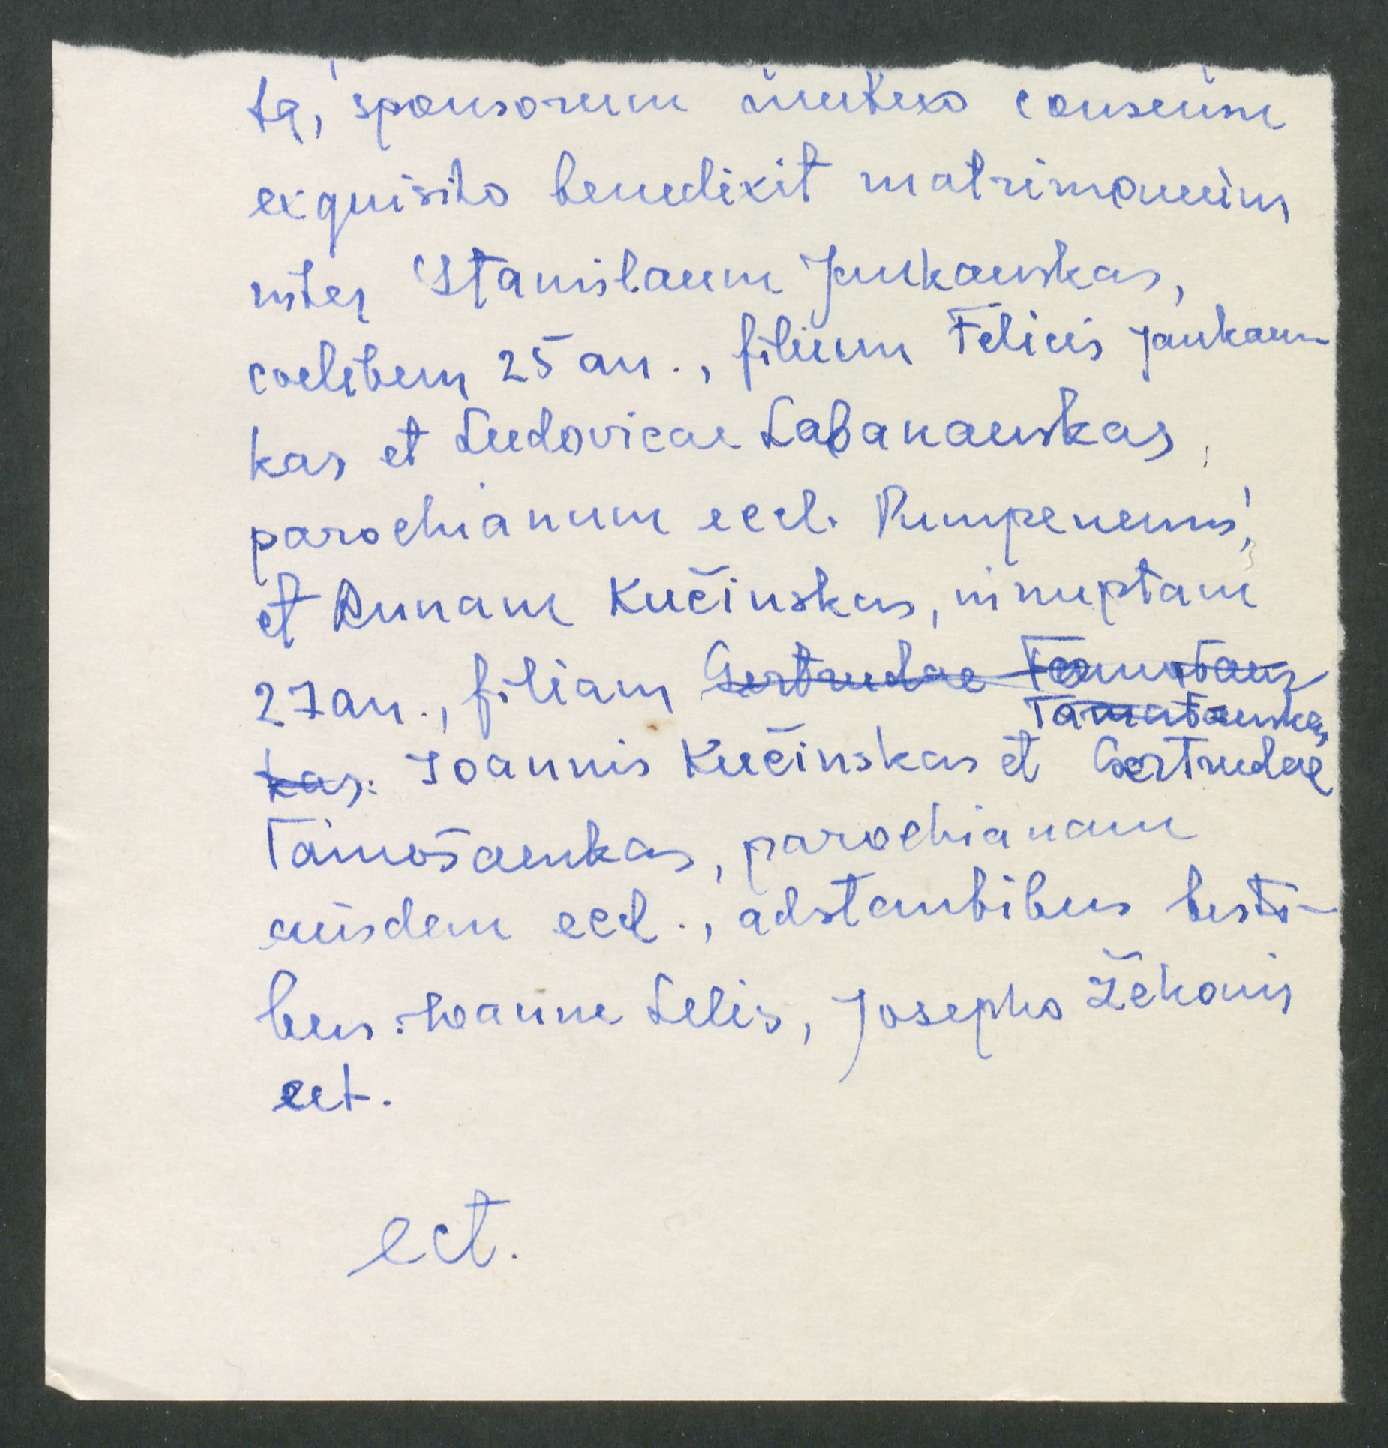 ta, sponsorum mutuo consensu
exquisito benedixit matrimonium
inter Stanislaum Jankauskas,
coelibem 25 an., filium Felicis Jankaus-
kas et Ludovicae Labanauskas,
parochianum eccl. Pumpenensis,
et Annam Kučinskas, innuptam
27 an., filiam Gertrudae
Tamošauskas
kas: Joannis Kučinskas et Gertrudae
Tamošauskas, parochianam
eiusdem eccl., adstantibus testi-
bus: Joanne Lelis, Josepho Žekonis
ect.
ect.